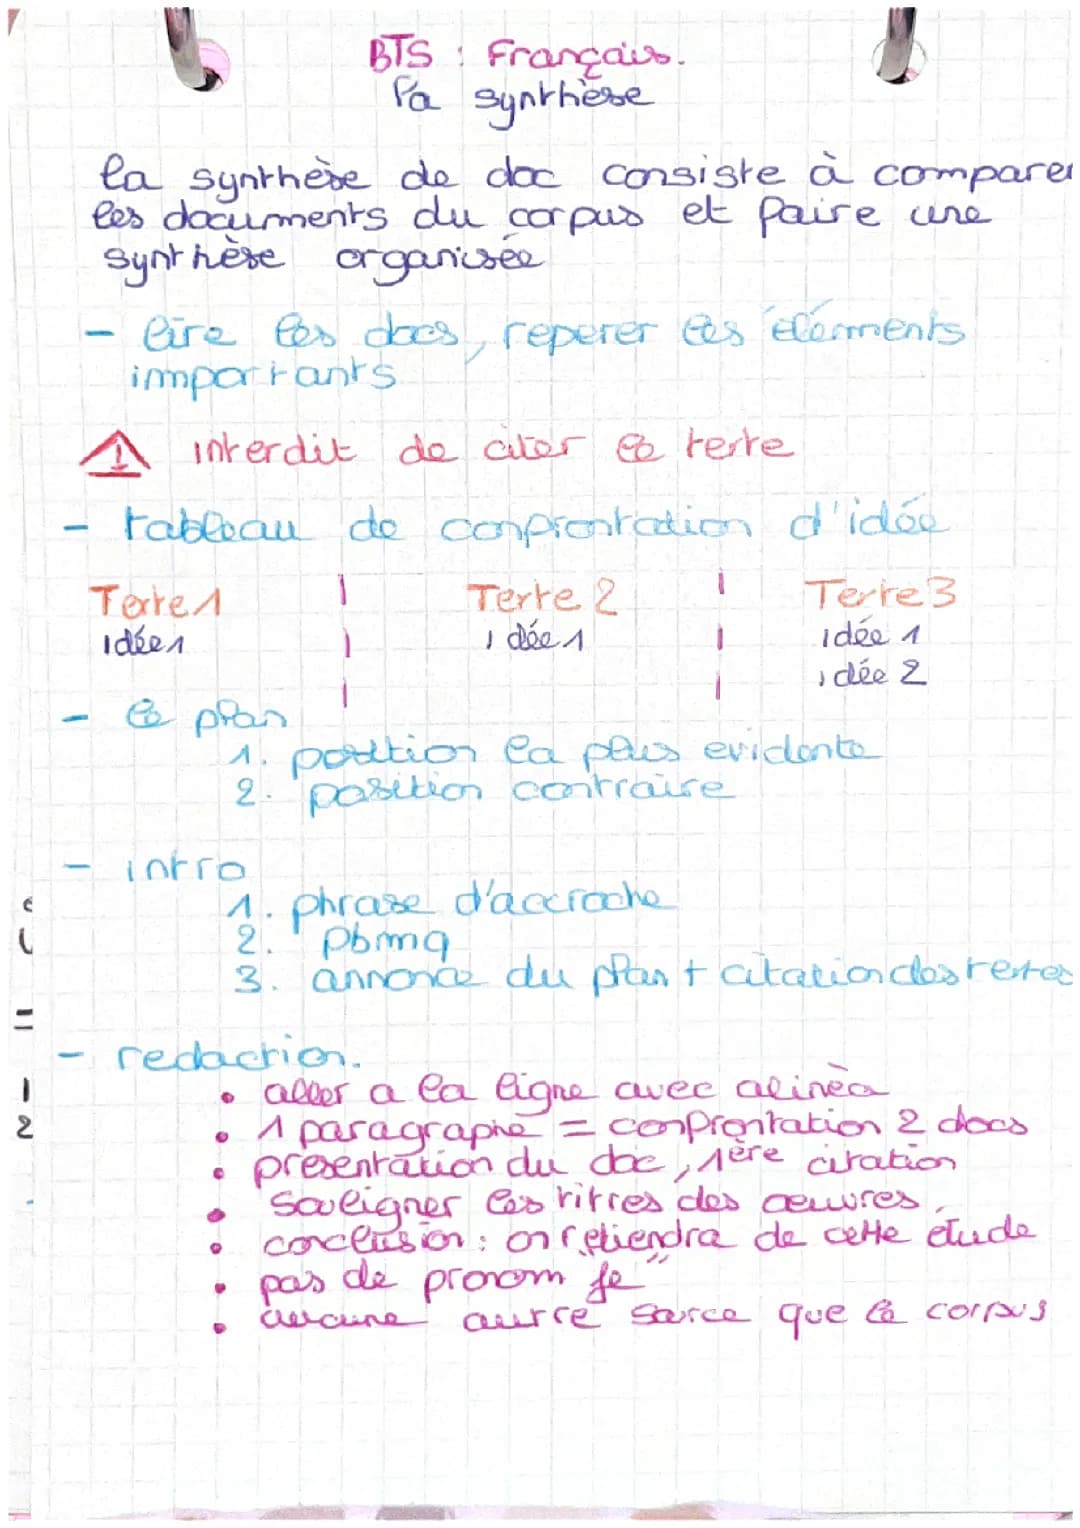 BTS : Français.
la synthèse
la synthèse de doc consiste à comparer
les documents du corpus et faire une
synthèse organisée
- lire les docs, reperer les élements
importants
⚠ interdit de citer le texte
- tableau de confrontation d'idée
Texte 1 Texte 2 Texte 3
idée 1 idée 1 idée 1
idée 2
- le plan
1. position la plus evidente
2. position contraire
- intro
1. phrase d'accroche
2. pbmq
3. annonce du plan + citation des textes
- redaction.
• aller a la ligne avec alinèa
• 1 paragraphe = confrontation 2 docs
• presentation du doc, 1ère citation
• souligner les titres des œuvres
• conclusion : on retiendra de cette étude
• pas de pronom "je"
• aucune autre source que le corpus